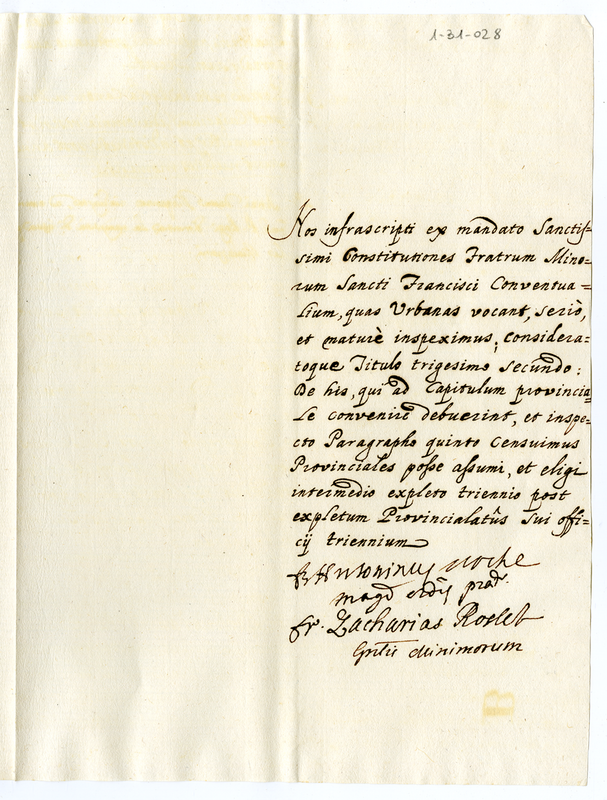 1-31-028
Nos infrascripti ex mandato Sanctis-
simi Constitutiones Fratrum Mino-
rum Sancti Francisci Conventua-
lium, quas Urbanas vocant, seriò,
et maturè inspeximus; considera-
toque Titulo trigesimo secundo:
De his, qui ad Capitulum provincia-
le convenire debuerint, et inspe-
cto Paragrapho quinto censuimus
Provinciales posse assumi, et eligi
intermedio expleto triennio post
expletum Provincialatûs sui offi-
cij triennium
fr Antoninus
fr. Zacharias Roslet
Minimorum